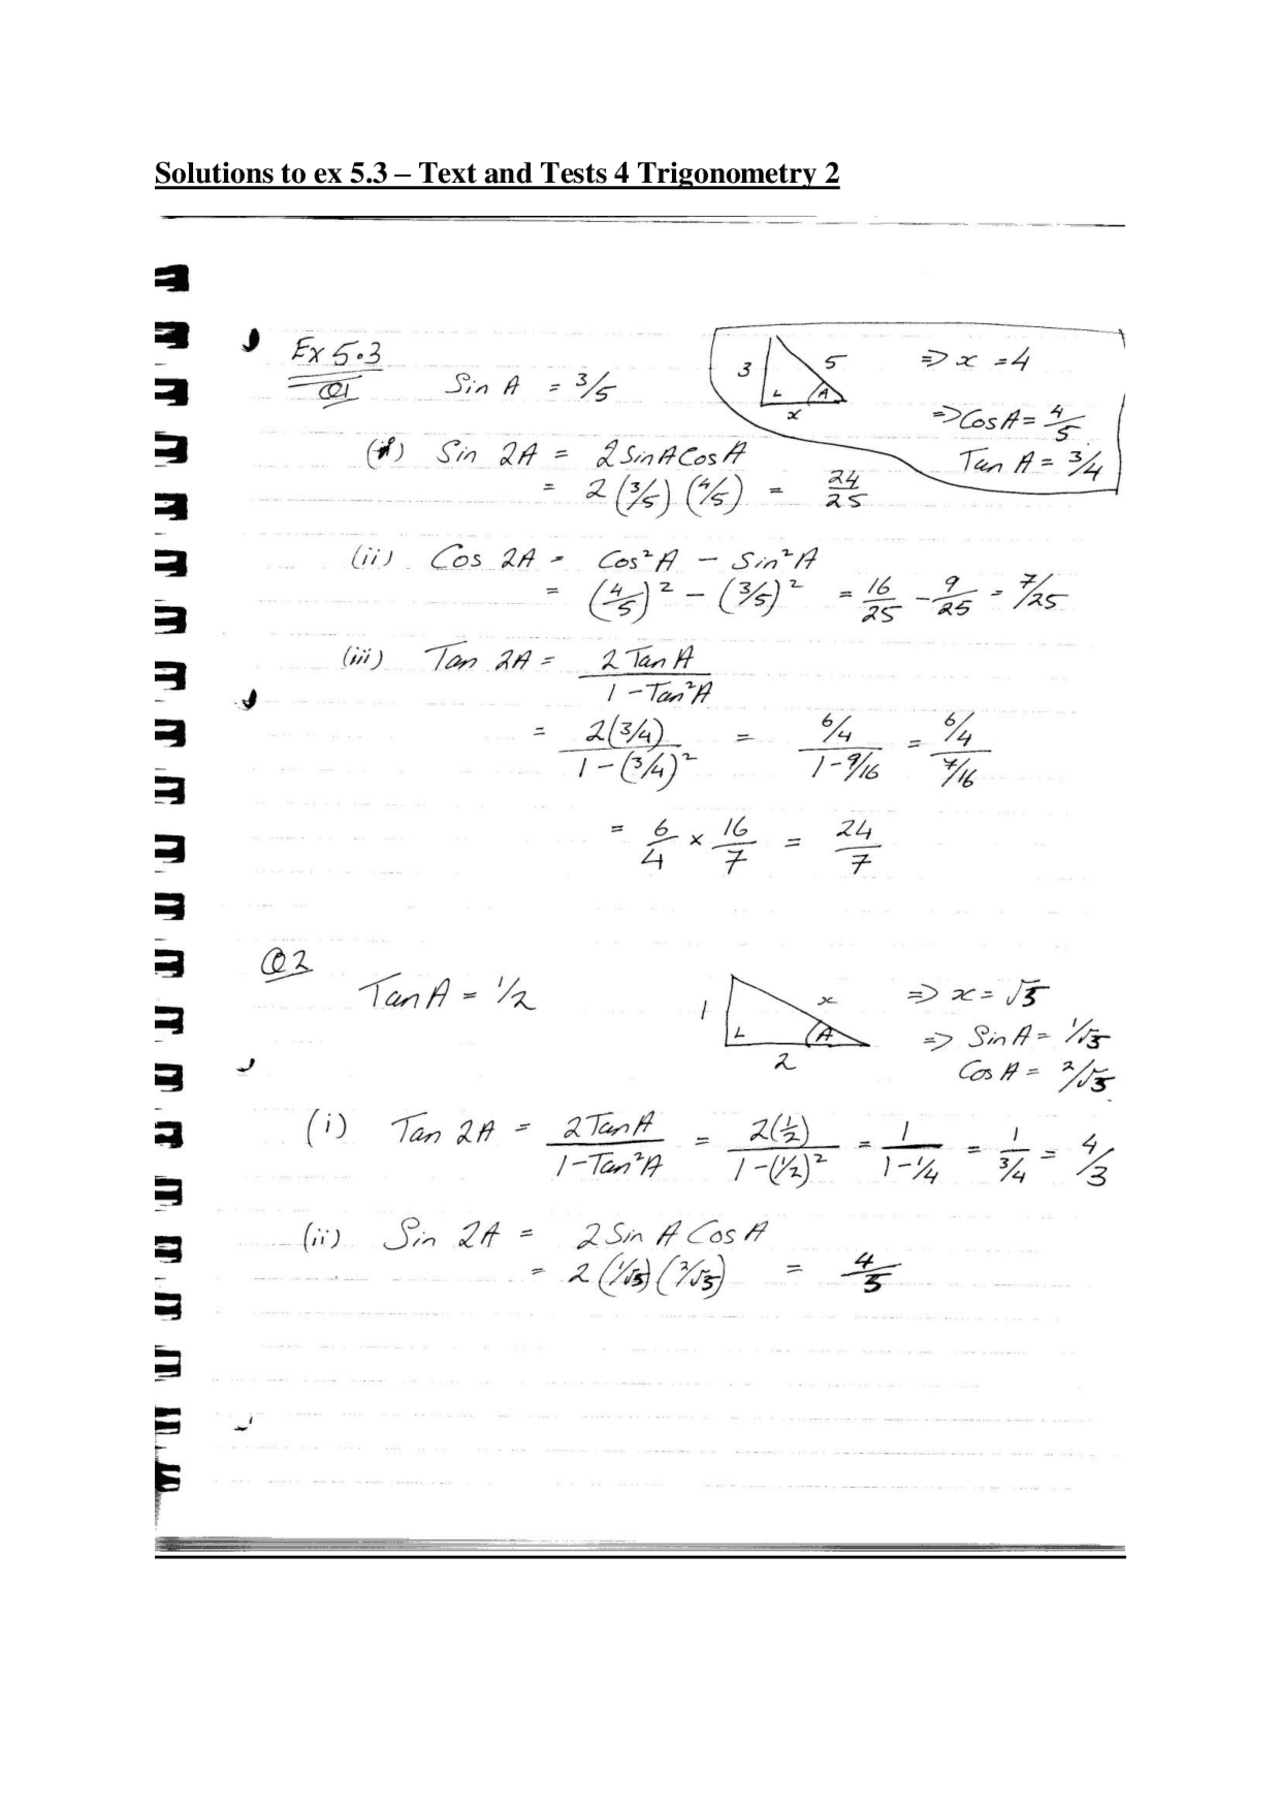 Solutions to ex 5.3 – Text and Tests 4 Trigonometry 2
Ex 5.3
Q1
Sin A = 3/5
3
5
x
A
⇒ x = 4
⇒ Cos A = 4/5
Tan A = 3/4
(i) Sin 2A = 2 Sin A Cos A
= 2 (3/5) (4/5) = 24/25
(ii) Cos 2A = Cos²A – Sin²A
= (4/5)² – (3/5)² = 16/25 – 9/25 = 7/25
(iii) Tan 2A = 2 Tan A / 1 – Tan²A
= 2(3/4) / 1 – (3/4)² = 6/4 / 1 – 9/16 = 6/4 / 7/16
= 6/4 × 16/7 = 24/7
Q2
Tan A = 1/2
1
x
A
2
⇒ x = √5
⇒ Sin A = 1/√5
Cos A = 2/√5
(i) Tan 2A = 2 Tan A / 1 – Tan²A = 2(1/2) / 1 – (1/2)² = 1 / 1 – 1/4 = 1 / 3/4 = 4/3
(ii) Sin 2A = 2 Sin A Cos A
= 2 (1/√5) (2/√5) = 4/5